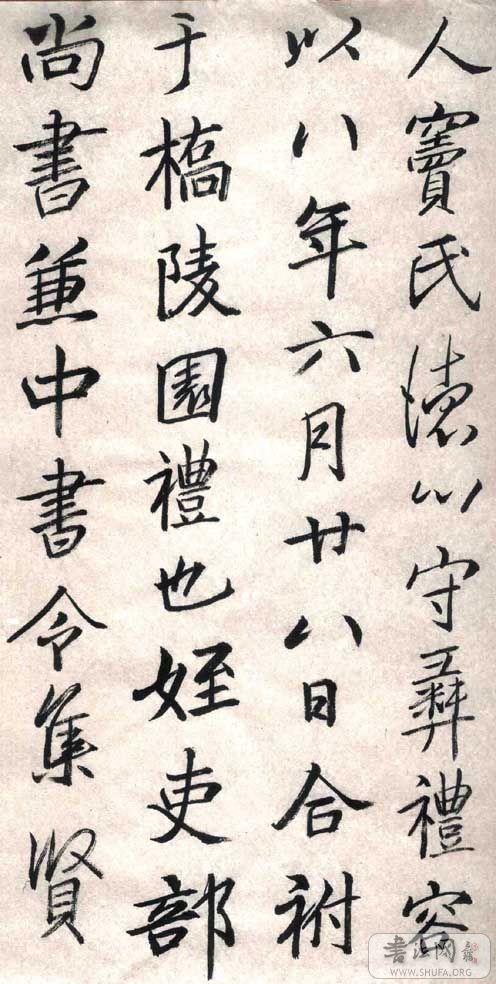 人竇氏以守彝禮容
以八年六月廿八日合祔
于橋陵園禮也姪吏部
尚書兼中書令集賢
書法网
WWW.SHUFA.ORG